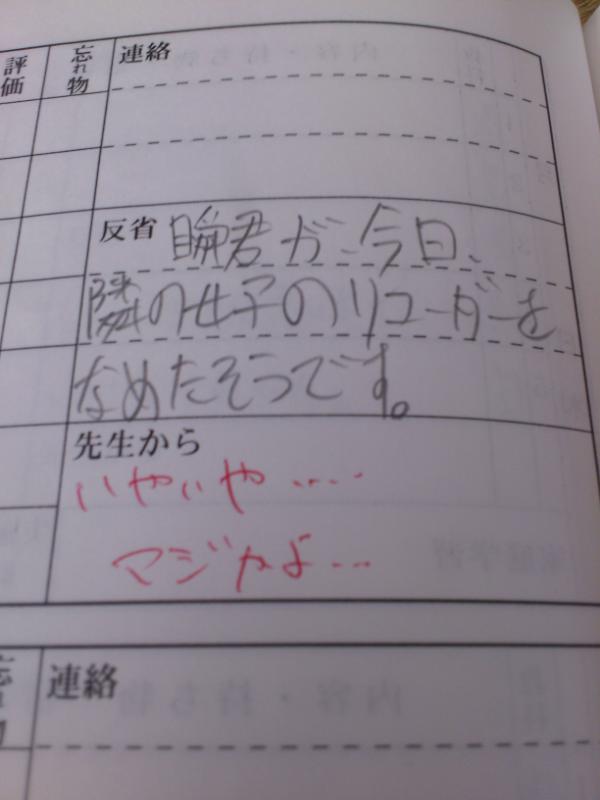 評価
忘れ物
連絡
反省 瞬君が、今日、
隣の女子のリコーダーを
なめたそうです。
先生から
いやいや‥‥
マジかよ…
連絡